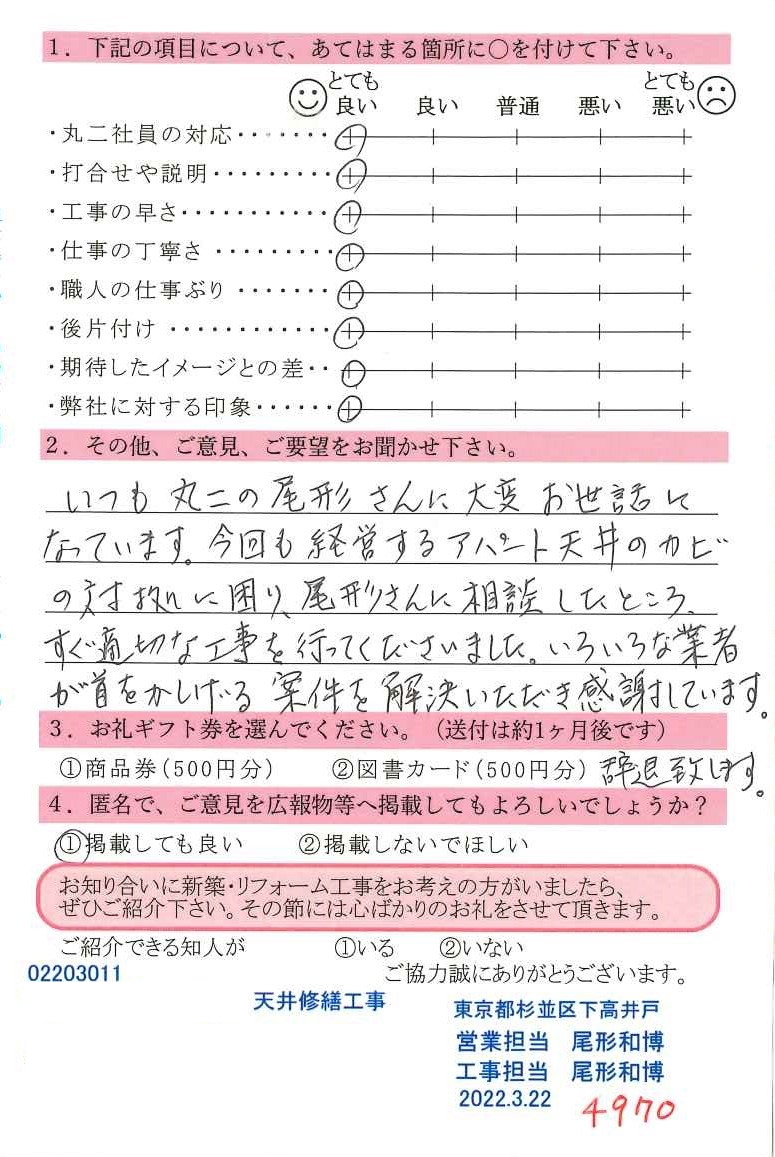 1．下記の項目について、あてはまる箇所に○を付けて下さい。
とても良い 良い 普通 悪い とても悪い
・丸二社員の対応・・・・・・・
・打合せや説明・・・・・・・・・
・工事の早さ・・・・・・・・・・・
・仕事の丁寧さ・・・・・・・・・
・職人の仕事ぶり・・・・・・・
・後片付け・・・・・・・・・・・・
・期待したイメージとの差・・
・弊社に対する印象・・・・・・
2．その他、ご意見、ご要望をお聞かせ下さい。
いつも丸二の尾形さんに大変お世話に
なっています。今回も経営するアパート天井のカビ
の対拠に困り、尾形さんに相談したところ、
すぐ適切な工事を行ってくださいました。いろいろな業者
が首をかしげる案件を解決いただき感謝しています。
3．お礼ギフト券を選んでください。（送付は約1ヶ月後です）
①商品券（500円分） ②図書カード（500円分） 辞退致します。
4．匿名で、ご意見を広報物等へ掲載してもよろしいでしょうか？
①掲載しても良い ②掲載しないでほしい
お知り合いに新築・リフォーム工事をお考えの方がいましたら、
ぜひご紹介下さい。その節には心ばかりのお礼をさせて頂きます。
ご紹介できる知人が ①いる ②いない
02203011 ご協力誠にありがとうございます。
天井修繕工事 東京都杉並区下高井戸
営業担当 尾形和博
工事担当 尾形和博
2022.3.22 4970